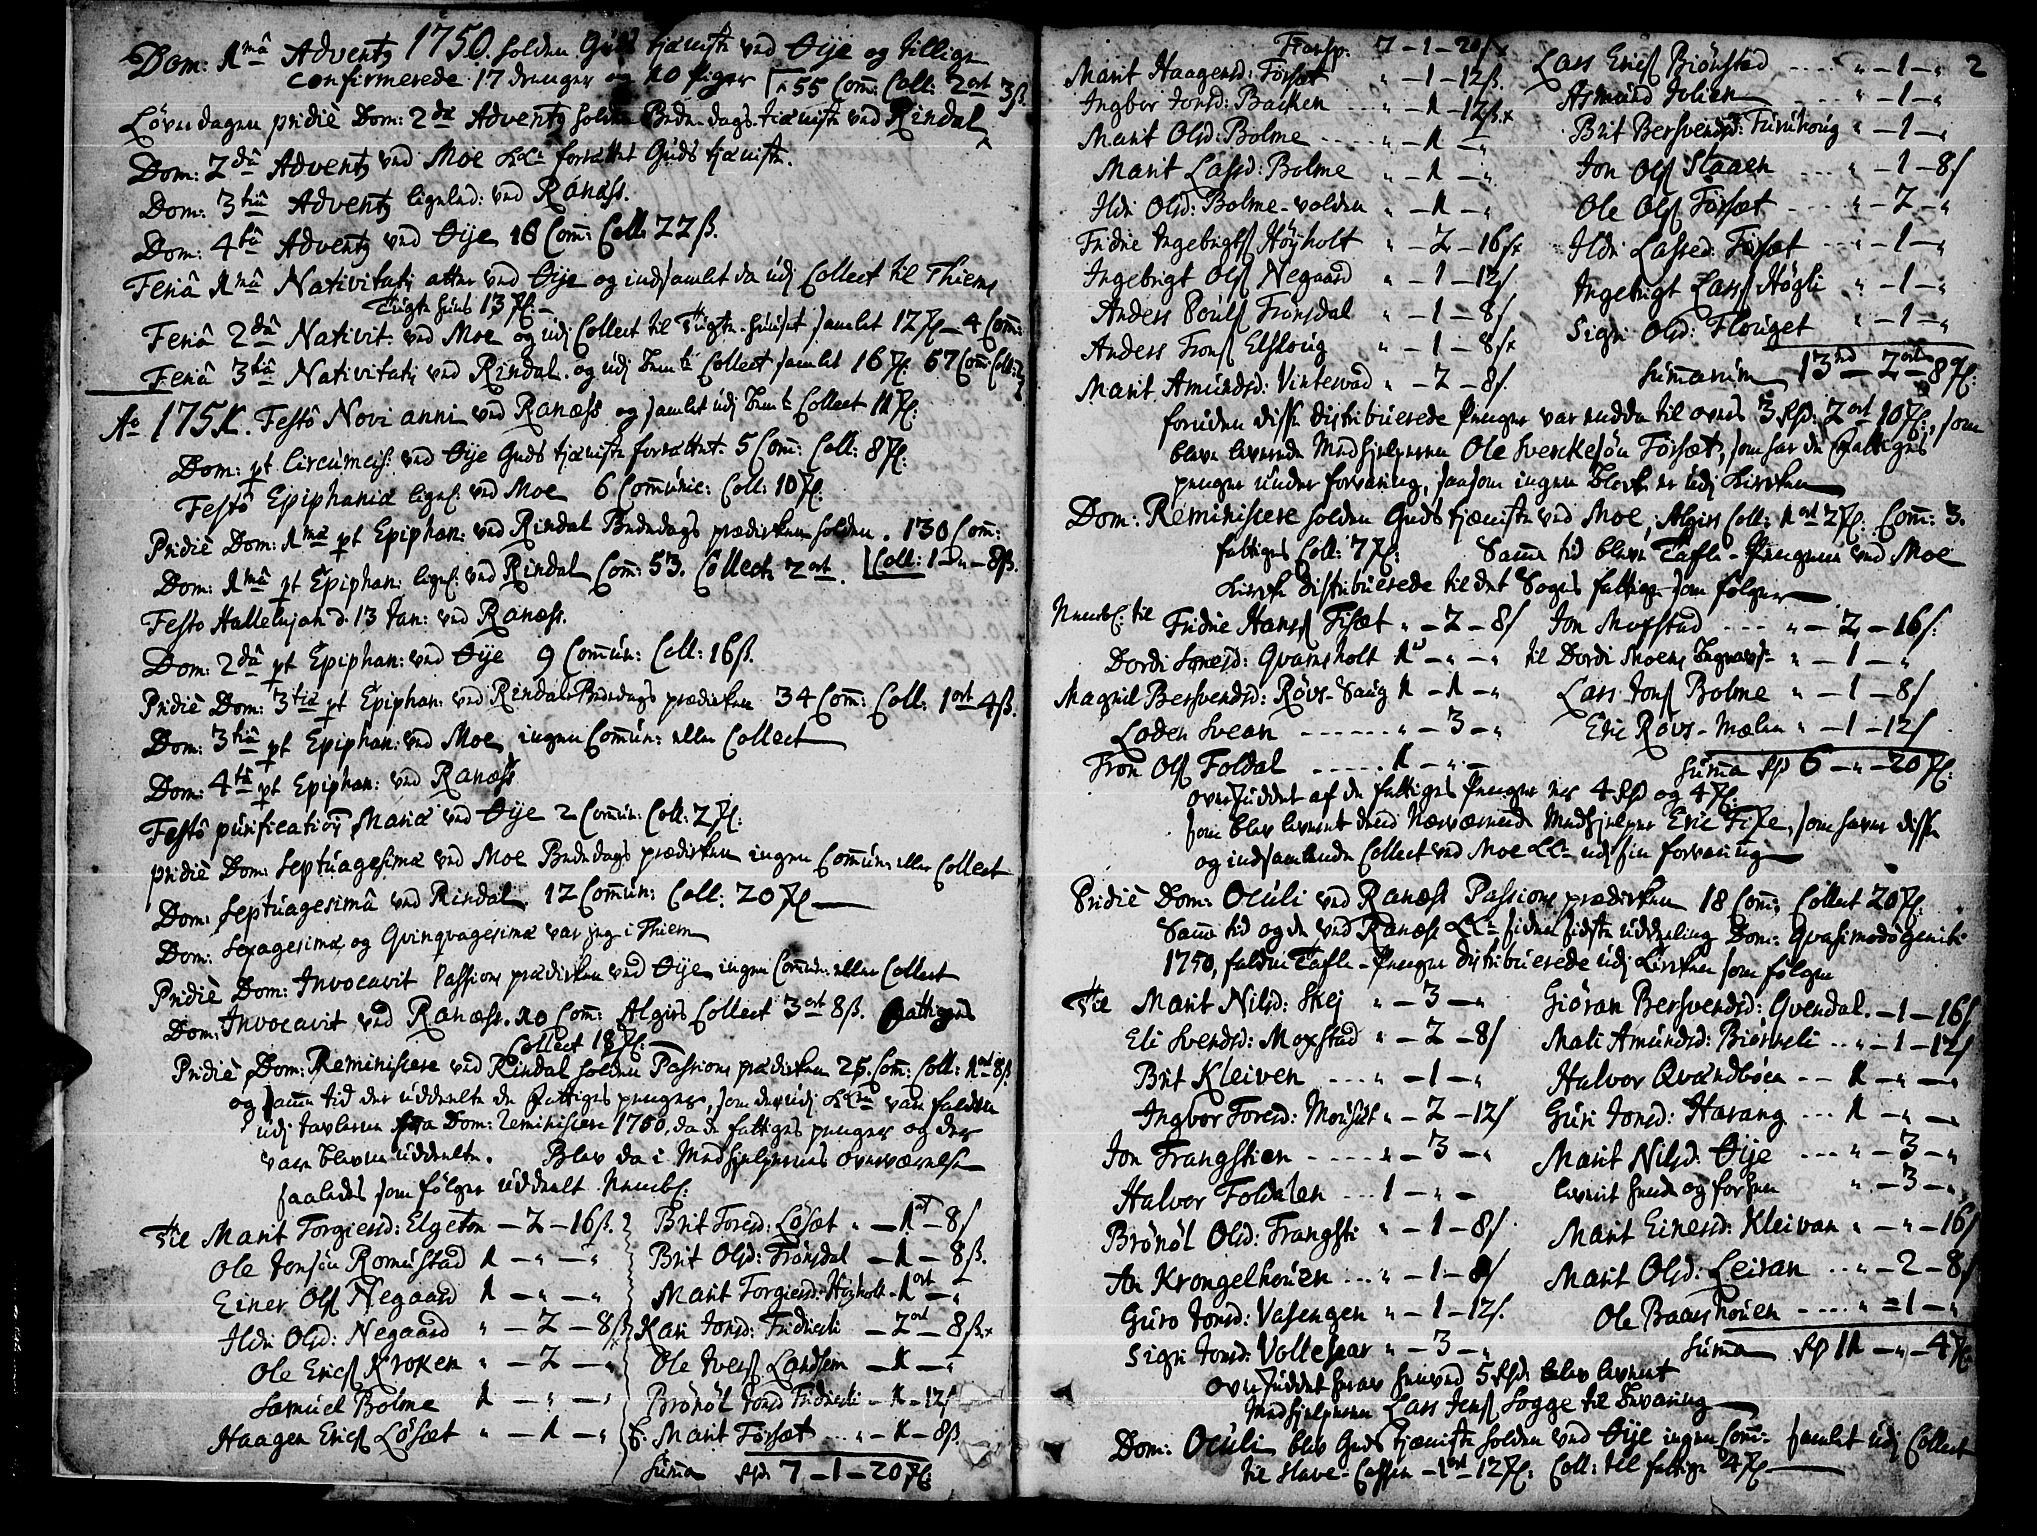 Dom: 1mâ Advent9 1750. holden Guds tjæniste ved Øije og tillige
confirmerede 17 drenger og 10 piger 55 Com: Coll: 2 ort 3ß.
Løverdagen pridiè Dom: 2dæ Advent9 holden Bededags tjæniste ved Rindal
Dom: 2dâ Advent9 ved Moe forrettet Guds tjæniste.
Dom: 3tiâ Advent9 ligeled: ved Ranæss.
Dom: 4tâ Advent9 ved Øije 16 Com: Coll: 22ß.
Feriâ 1mâ Nativitatis atter ved Øije og indsamlet da udj Collect til Thiems
Tugte huus 13 ß.
Feriâ 2dâ Nativit: ved Moe og udj Collect til Tugte-huuset samlet 12 ß 4 Com:
Feriâ 3tiâ Nativitatis ved Rindal og udj Collect samlet 16 ß. 67 Com: Coll:
Ao 1751. Festô Novi anni ved Ranæss og samlet udj Collect 11 ß:
Dom: pt Circumcis: ved Øije Guds tjæniste forrettet. 5 Com: Coll: 8 ß:
Festô Epiphaniæ lignf: ved Moe 6 Communic: Coll: 10 ß:
Pridiè Dom: 1mæ pt Epiphan: ved Rindal Bededags prædicken holden. 130 Com:
Coll: 1 - " - 8ß.
Dom: 1mâ pt Epiphan: lignf: ved Rindal Com: 53. Collect: 2 ort.
Festo Hallelujah d. 13 Jan: ved Ranæss.
Dom: 2dâ pt Epiphan: ved Øije 9 Commun: Coll: 16ß.
Pridiè Dom: 3tiæ pt Epiphan: ved Rindal Bededags prædicken 34 Com: Coll: 1 ort 4ß.
Dom: 3tiâ pt Epiphan: ved Moe ingen Commun: eller Collect
Dom: 4tâ pt Epiphan: ved Ranæss
Festô purification Mariæ ved Øije 2 Commun: Coll: 2 ß:
pridiè Dom: Septuagesimæ ved Moe Bededags prædicken ingen Commun: eller Collect
Dom: Septuagesimâ ved Rindal. 12 Commun: Coll: 20 ß
Dom: Sexagesimæ og Qvinqvagesimæ var jeg i Thiem
Pridiè Dom: Invocavit Passions prædicken ved Øije ingen Commun: eller Collect
Dom: Invocavit ved Ranæss. 10 Com: Algiers Collect 3 ort 8ß. Fattiges
Collect 18 ß.
Pridiè Dom: Reminiscere ved Rindal holden Passions prædicken 25. Com: Coll: 1 ort 8ß.
og samme tid der uddeelte de Fattiges penger, som der udj var falden
udj tavlerne fra Dom: Reminiscere 1750, da de fattiges penger og der
vare bleven uddeelte. Blev da i Medhjelpernes overværelse
saaledes som følger uddeelt Nembl:
Til Marit Torgiersd: Elgeton - 2 - 16ß.
Ole Jonsøn Romustad 1 - " - "
Einer Ols: Negaard 1 - " - "
Ildri Olsd: Negaard " - 2 - 8ß
Ole Erics: Kroken " - 2 - "
Samuel Bolme 1 - " - "
Haagen Erics: Løsæt " - 1 - "
Brit Toresd: Løsæt " - 1 ort - 8ß
Brit Olsd: Tronsdal - 1 - 8ß.
Marit Torgiersd: Høyholt - 1 ort - "
Kari Jonsd: Fridriesli - 2 ort - 8ß.
Ole Ivers: Landsem - 1 - "
Brønøl Jonsd Fridriesli - 1 - 12ß
E. Marit Førsæt " - 1 - 8ß.
Suma Rd 7 - 1 - 20 ß:
2
Transp. 7 - 1 - 20ß
Marit Haagensd: Førsæt " - 1 - 12ß.
Ingbor Jonsd: Backen " - 1 - 12ß.
Marit Olsd: Bolme " - 1 - "
Marit Larsd: Bolme " - 1 - "
Ildri Olsd: Bolme-volden " - 1 - "
Fridric Ingebrigts: Høyholt " - 2 - 16ß
Ingebrigt Ols: Negaard " - 1 - 12ß
Anders Pouls: Tronsdal " - 1 - 8ß
Anders Trons: Elshoug " - 1 - 8ß
Marit Amundsd: Vintervad " - 2 - 8ß.
Lars Erics: Biønstad " - 1 - "
Asmund Jolien " - 1 - "
Brit Bersvendsd: Furuhoug " - 1 - "
Jon Ols: Staaen " - 1 - 8ß
Ole Ols: Førsæt - 2 - "
Ildri Larsed: Førsæt " - 1 - "
Ingebrigt Lars: Høgli " - 1 - "
Sigri Olsd: Flouget " - 1 - "
Summarum 13 rd - 2 ort - 8 ß:
foruden disse distribuerede Penger var endda til overs 3 Rd: 2 ort 10 ß:, som
blev leverede Medhjelperen Ole Sverkesøn Førsæt, som har de fattiges
penger under forvaring, saasom ingen Block er udj Kircken
Dom: Reminiscere holden Guds tjæniste ved Moe, Algiers Coll: 1 ort 2 ß: Com: 3.
fattiges Coll: 7 ß: Samme tid bleve Tafle-Pengene ved Moe
Kircke distribuerede til det Sogns fattige som følger
Nembl: til Fridric Hans: Fisæt " - 2 - 8ß
Dordi Jonesd: Qvamsholt 1 - " - "
Magnil Bersvendsd: Røvs-haug 1 - 1 - "
Loden Svean " - 3 - "
Tron Ols: Foldal 1 - " -
Jon Moxstad " - 2 - 16ß.
til Dordi Moens " - 1 - "
Lars Jons: Bolme " - 1 - 8ß
Eric Røvs-Mælen " - 1 - 12ß
Suma Rd 6 - " - 20 ß:
overskuddet af de fattiges Penger er 4 Rd og 4 ß:
som blev leveret Medhjelper Eric Fixe, som haver disse
og indsamlende Collect ved Moe udj sin forvaring
Pridiè Dom: Oculi ved Ranæss Passions prædicken 18 Com: Collect 20 ß.
Samme tid og de ved Ranæss siden sidste uddeeling Dom: Qvasimodogeniti
1750, faldne Tafle-Penger distribuerede udj Kircken som følger
Til Marit Nilsd: Skej " - 3 - "
Eli Svendsd: Moxstad " - 2 - 8ß
Brit Kleiven " - 1 - "
Ingbor Toresd: Mousæt " - 2 - 12ß
Jon Trangstien " - 3 - "
Halvor Foldalen 1 - " -
Brønøl Olsd: Trangsti " - 1 - 8ß.
An Krongelhouen " - 1 - 8ß
Guro Jonsd: Vasengen " - 1 - 12ß.
Sigri Jonsd: Vollesæter " - 3 - "
Giøran Bersvendsd: Qvendal - 1 - 16ß
Mali Amundsd: Biørneli " - 1 - 12ß
Halvor Qvandboen 1 - " -
Guri Jonsd: Harang 1 - " -
Marit Nilsd: Øije " - 3 - "
" - 3 - "
Marit Einersd: Kleivan " - " - 16ß
Marit Olsd: Leiran " - 2 - 8ß
Ole Baarshouen " - 1 - "
Suma Rd 11 - " - 4 ß.
overskuddet 5 Rd: blev leveret
Medhjelperen Lars Jens: Sogge til forvaring
Dom: Oculi blev Guds tjæniste holden ved Øije ingen Com: samlet udj Collect
til Slave-Cassen - 1 ort 12 ß. Coll: til fattige 4 ß